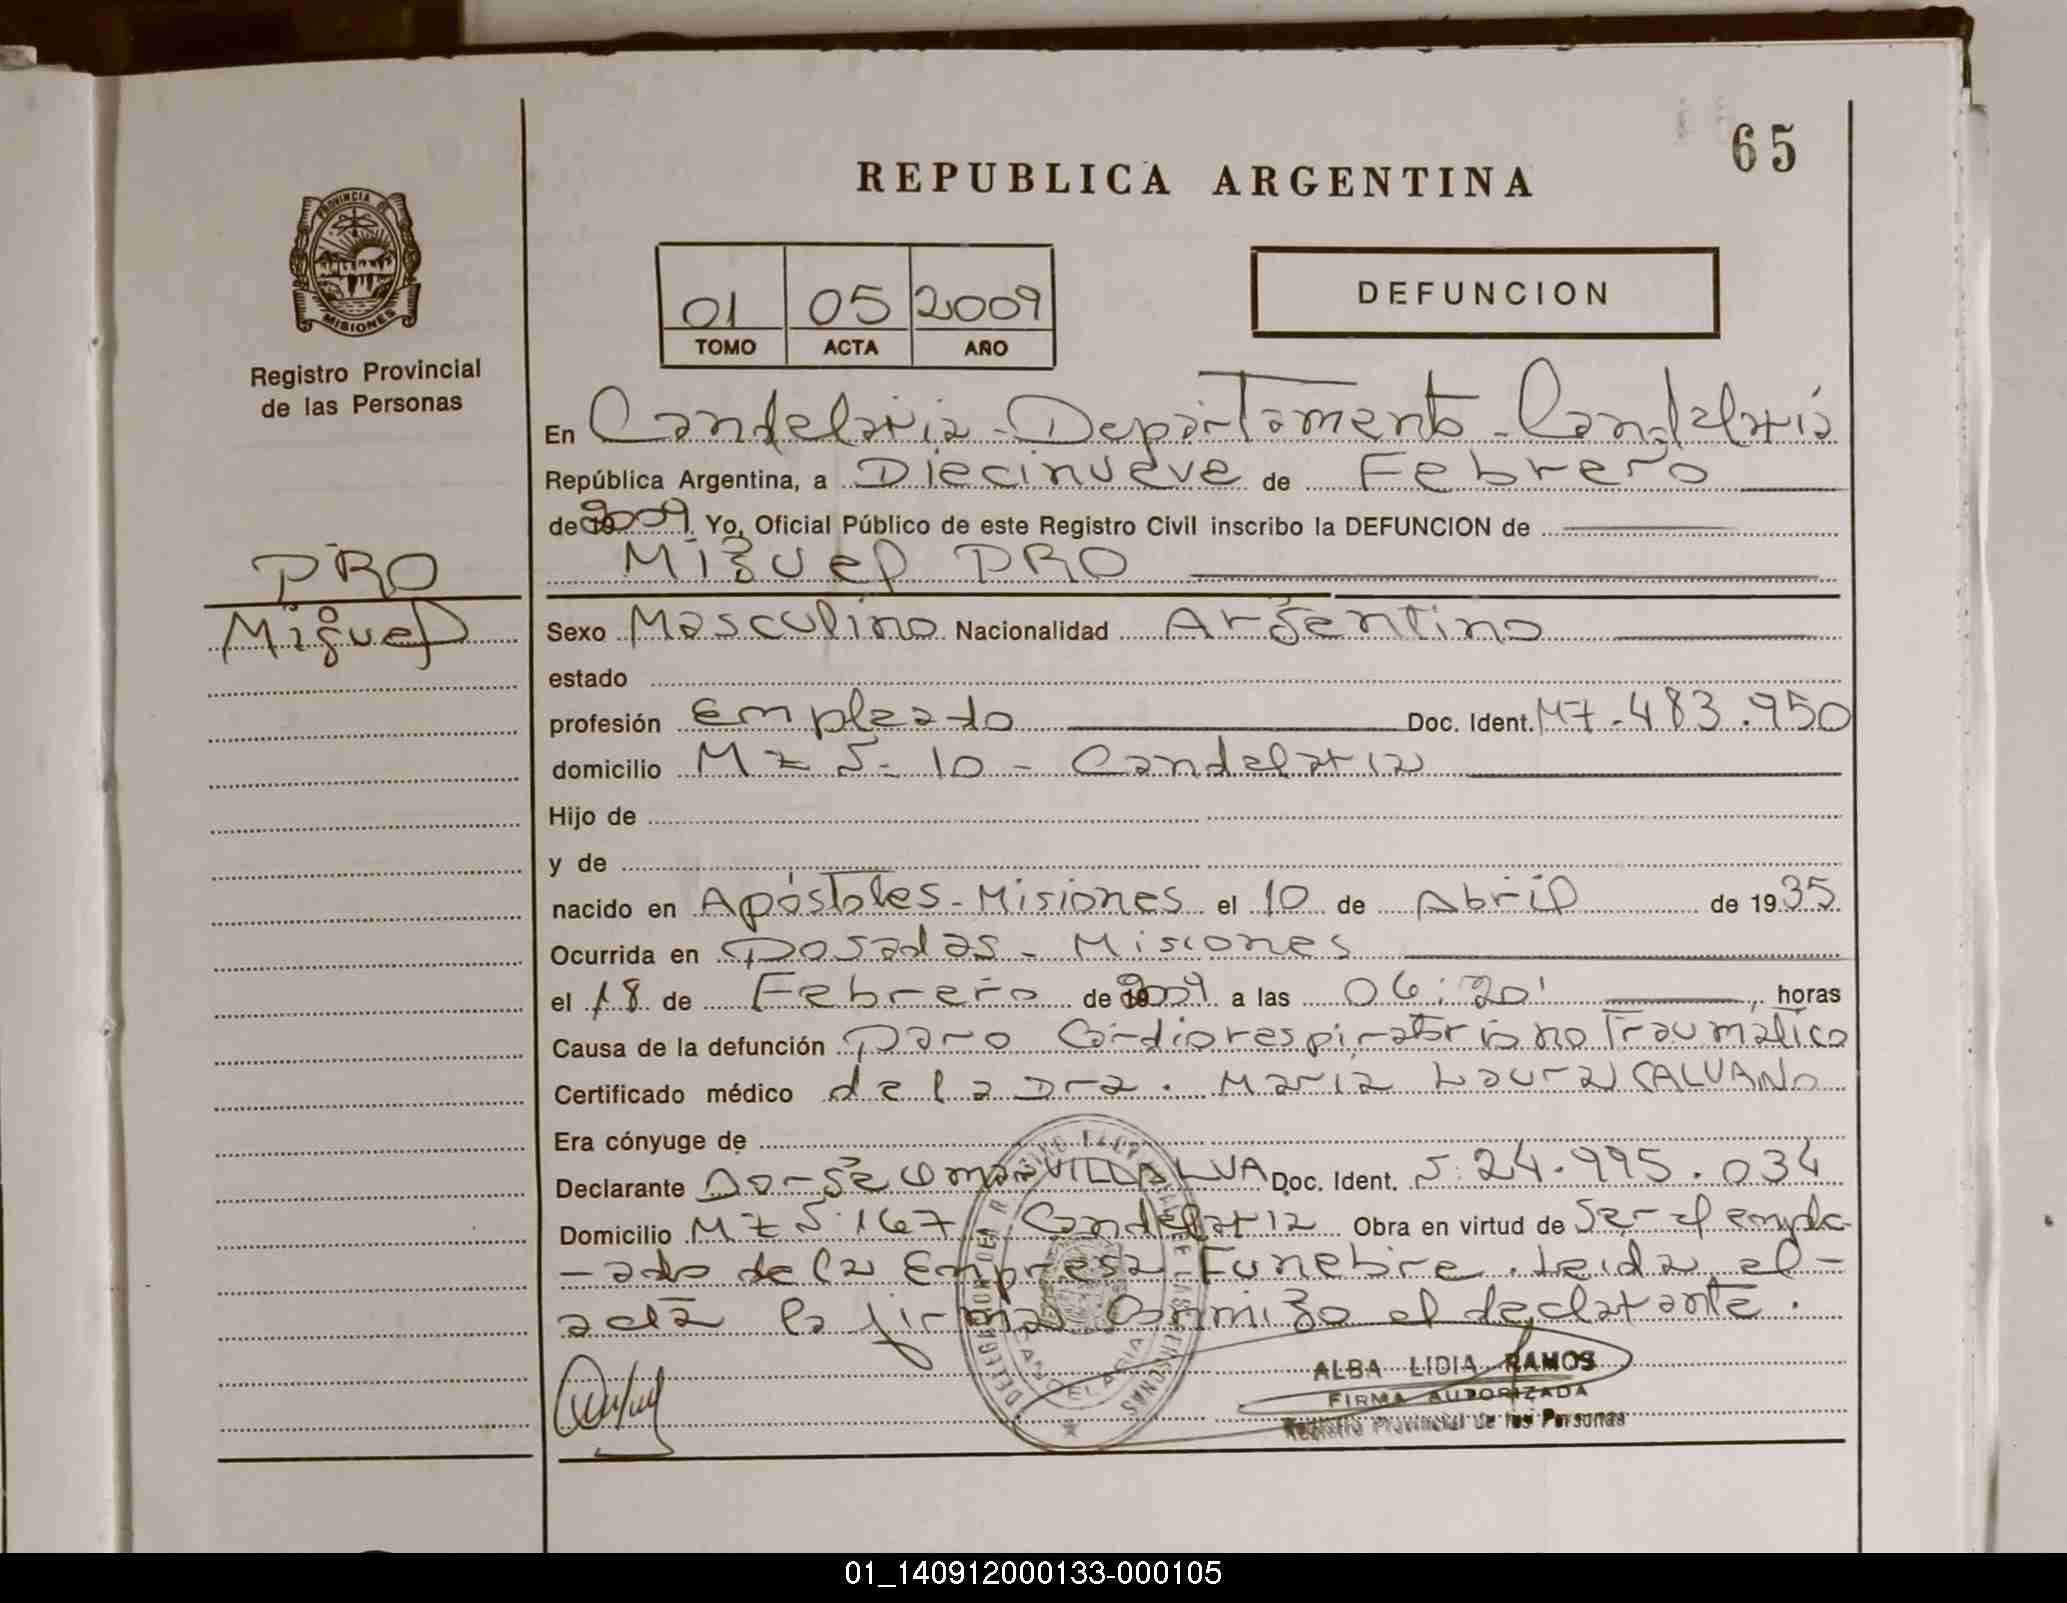 65
REPUBLICA ARGENTINA
PROVINCIA DE
MISIONES
Registro Provincial
de las Personas
01 05 2009
TOMO ACTA AÑO
DEFUNCION
En Candelaria - Departamento - Candelaria
República Argentina, a Diecinueve de Febrero
de 2009. Yo, Oficial Público de este Registro Civil inscribo la DEFUNCION de
Miguel PRO
PRO
Miguel
Sexo Masculino Nacionalidad Argentino
estado
profesión Empleado Doc. Ident. M7.483.950
domicilio Mz 5-10 - Candelaria
Hijo de
y de
nacido en Apóstoles - Misiones el 10 de Abril de 1935
Ocurrida en Posadas - Misiones
el 18 de Febrero de 2009 a las 06:20' horas
Causa de la defunción Paro Cardiorespiratorio no Traumático
Certificado médico de la Dra. Maria Laura CALVANO
Era cónyuge de
Declarante Omar VILLALVA Doc. Ident. 24.995.034
Domicilio Mz 5·167 Candelaria Obra en virtud de Ser el emple-
-ado de la Empresa Funebre. Leida el-
acta la firma conmigo el declarante.
CANDELARIA
ALBA LIDIA RAMOS
FIRMA AUTORIZADA
Registro Provincial de las Personas
01_140912000133-000105